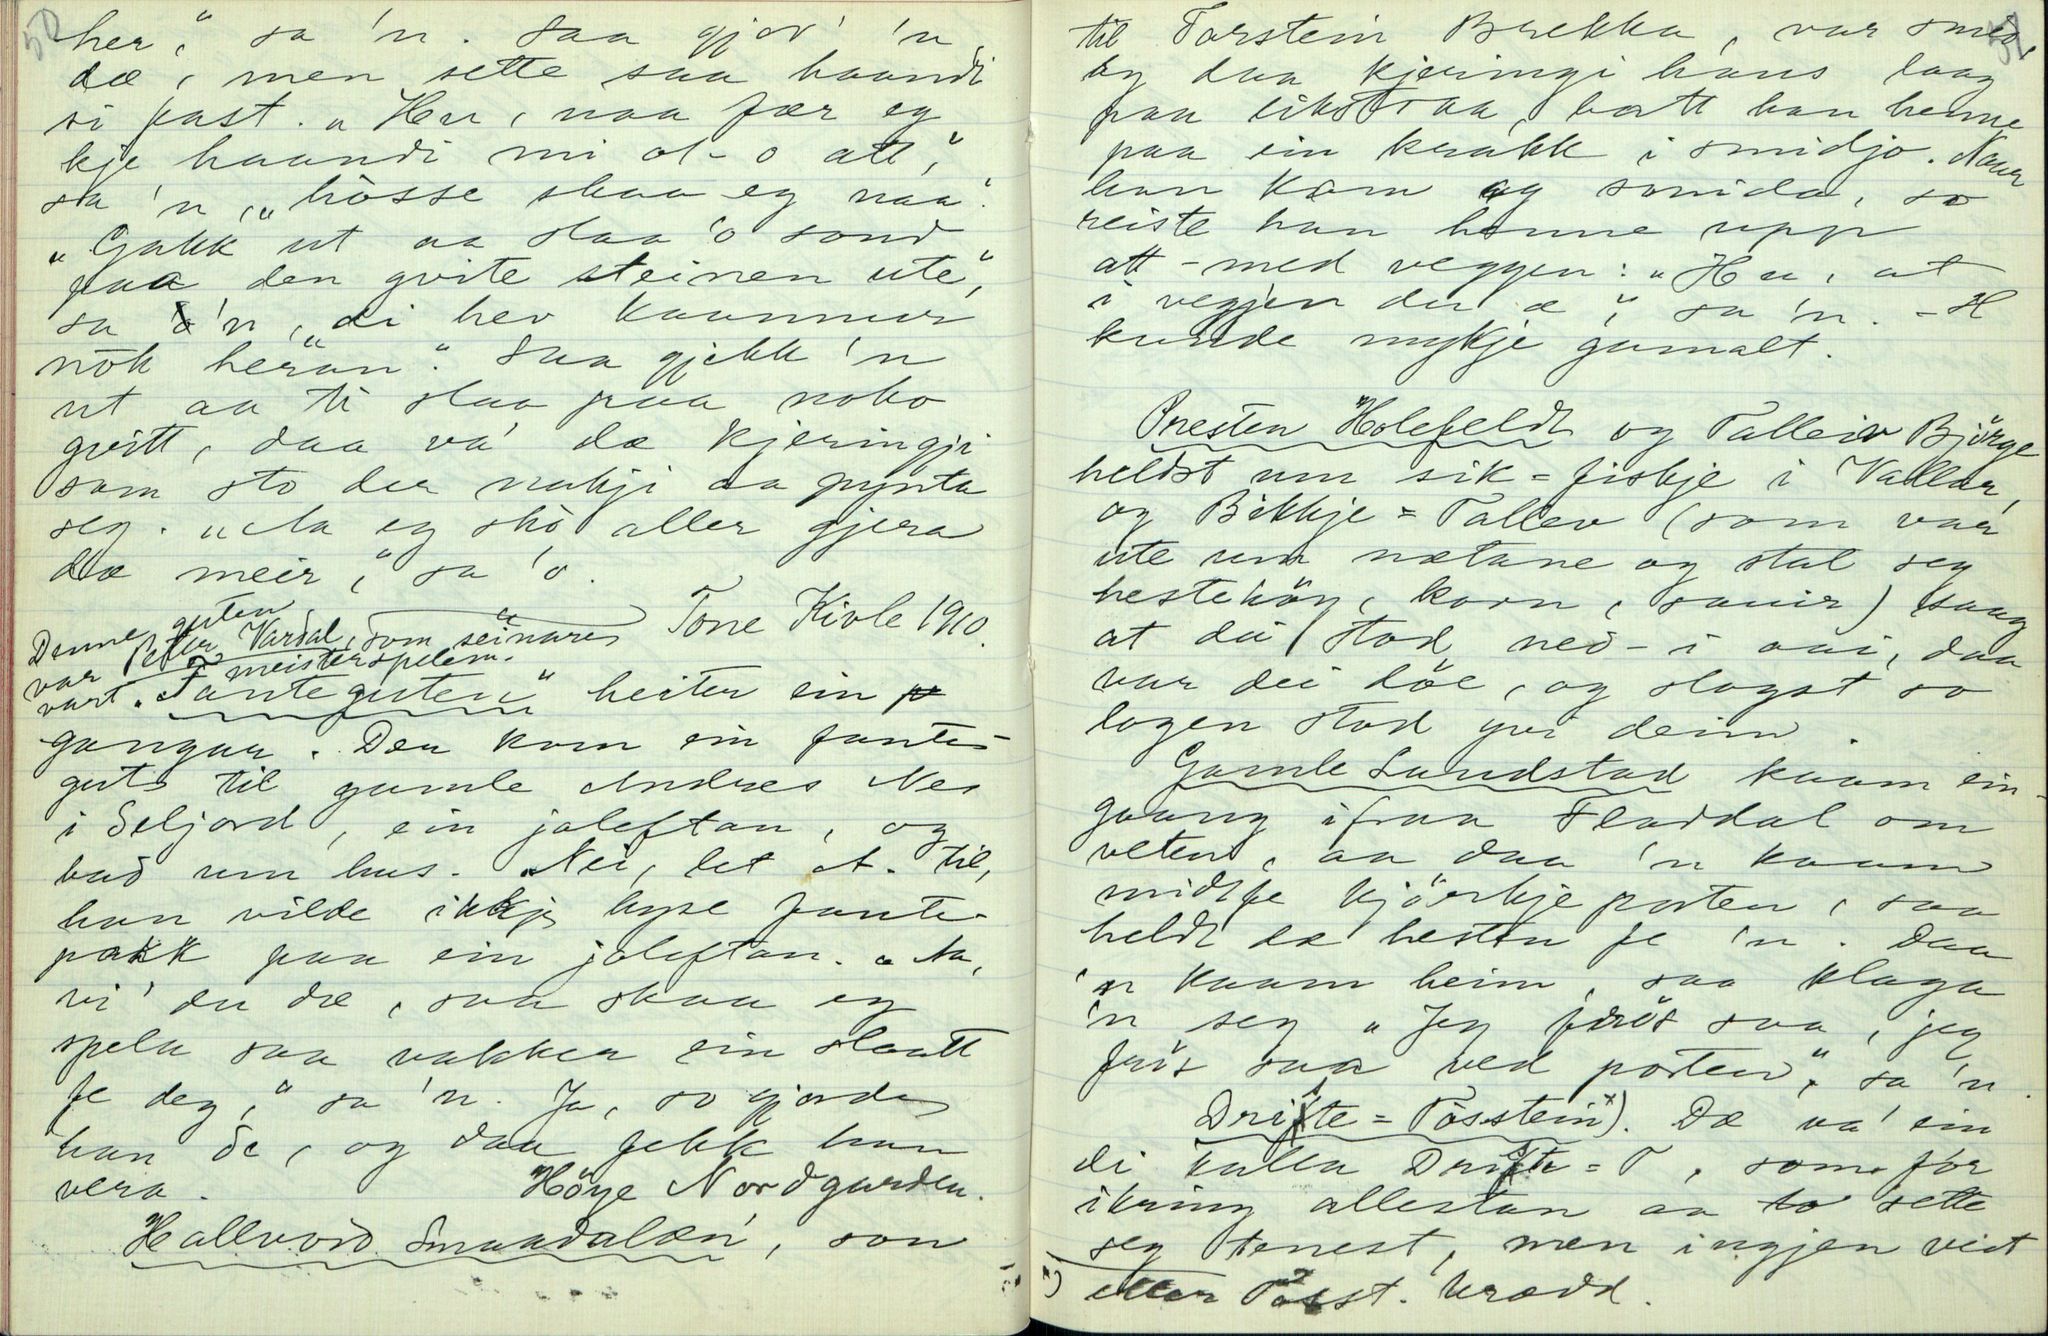 50
her," sa 'n. Saa gjor' 'n
dæ, men sette saa haandi
si fast. "Hu, naa fær eg
kje haandi mi ol-o att,"
sa 'n, "hòsse skaa eg naa."
"Gakk ut aa slaa 'o sond
paa den gvite steinen ute,"
sa 'n, "di hev kaammir
nòk herän." Saa gjekk 'n
ut aa ti slaa paa noko
gvitt, daa va' dæ kjeringji
som sto der nakji aa pynta
seg. "Aa eg skò aller gjera
dæ meir," sa 'o.
Tone Kivle 1910.
Denne guten
var Petter Vardal, som seinare
vart meisterspelem.
"Fanteguten" heiter ein
gangar. Der kom ein fante-
gut til gamle Andres Nes
i Seljord, ein joleftan, og
bad um hus. Nei, let A. til,
han vilde ikkje hyse fante-
pakk paa ein joleftan. "Aa,
vi' du dæ, saa skaa eg
spela saa vakker ein slaatt
fe deg," sa 'n. Ja, so gjorde
han de, og daa fekk han
vera. Höye Nordgarden.
Hallvord Smaadalæn, son
51
til Torstein Brekka, var smed,
og daa kjeringi hans laag
paa likstraa, batt han henne
paa ein krakk i smidjo. Naar
han kom og smida, so
reiste han henne upp
att-med veggen: "Hu, at
i vegjen du æ," sa 'n. - H
kunde mykje gamalt.
Presten Holefeldt og Talleiv Björge
heldt um sik-fiskje i Vallar,
og Bikkje-Tallev (som var
ute um nætane og stal seg
hestehöy, korn, sauir) saag
at dei stod ned-i aai, daa
var dei döe, og slogst so
logen stod yvi deim.
Gamle Landstad kaam ein-
gaang ifraa Flatdal om
veteren, aa daa 'n kaam
midt fe kjörkjeporten, saa
heldt dæ hesten fe 'n. Daa
'n kaam heim, saa klaga
'n seg "Jeg frös saa, jeg
frös saa ved porten," sa 'n.
Drifte-Tòsstein x). Dæ va' ein
di kalla Drifte-T, som fór
ikring allestan aa sette
seg tenest, men ingjen veit
x) etter Tòsst. Vrædd.